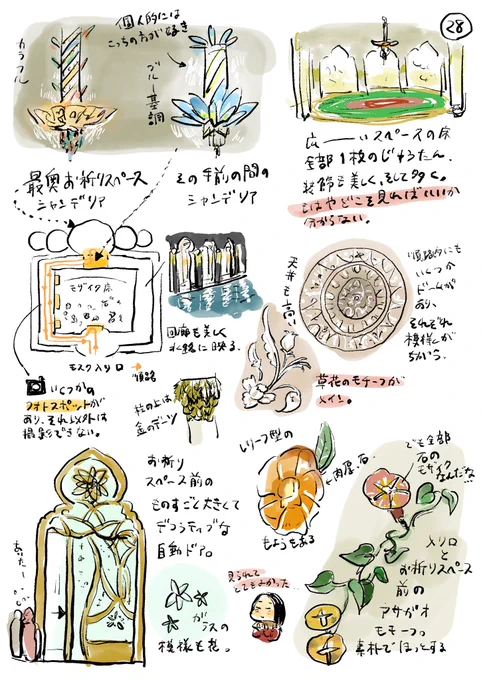 28
個人的には
こっちの方が好き
カラフル
ブルー基調
最奥お祈りスペース
シャンデリア
その手前の間の
シャンデリア
広ーーいスペースの床
全部1枚のじゅうたん。
装飾も美しく、そして多く。
もはやどこを見ればいいか
分からない。
モザイク床
モスク入り口
→順路
回廊も美しく
水路に映る。
天井も高い
順路的にも
いくつか
ドームが
あり、
それぞれ
模様が
ちがう。
いくつかの
フォトスポットが
あり、それ以外は
撮影できない。
柱の上は
金のデーツ
草花のモチーフが
メイン。
お祈り
スペース前の
ものすごく大きくて
デコラティブな
自動ドア。
レリーフ型の
もようもある
でも全部
石の
モザイク
なんだな…!!
入り口
と
お祈りスペース
前の
アサガオ
モチーフ。
素朴でほっとする
ガラスの
模様も花。
見られて
とてもよかった…